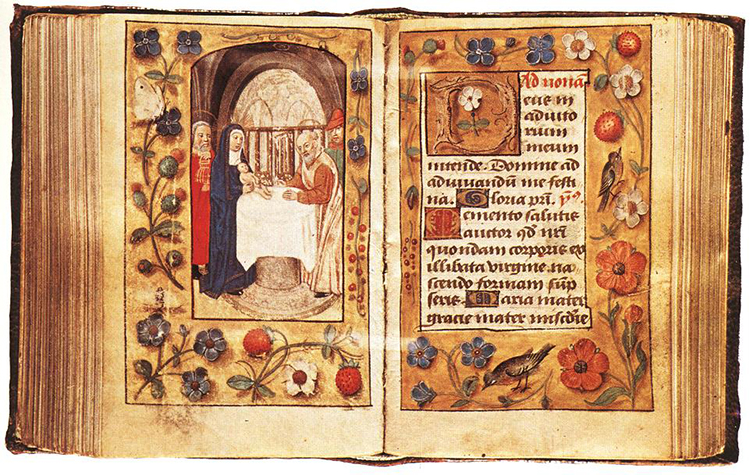 Ad nonā
Deus in
adiuto
rium
meum
intende. Domine ad
adiuvandū me festi
na. Gloria pr̄i. ym̄.
Memento salutis
auctor qd̄ nr̄i
quondam corporis ex
illibata virgine na
scendo formam sūp
seris. Maria mater
gracie mater misc̄die